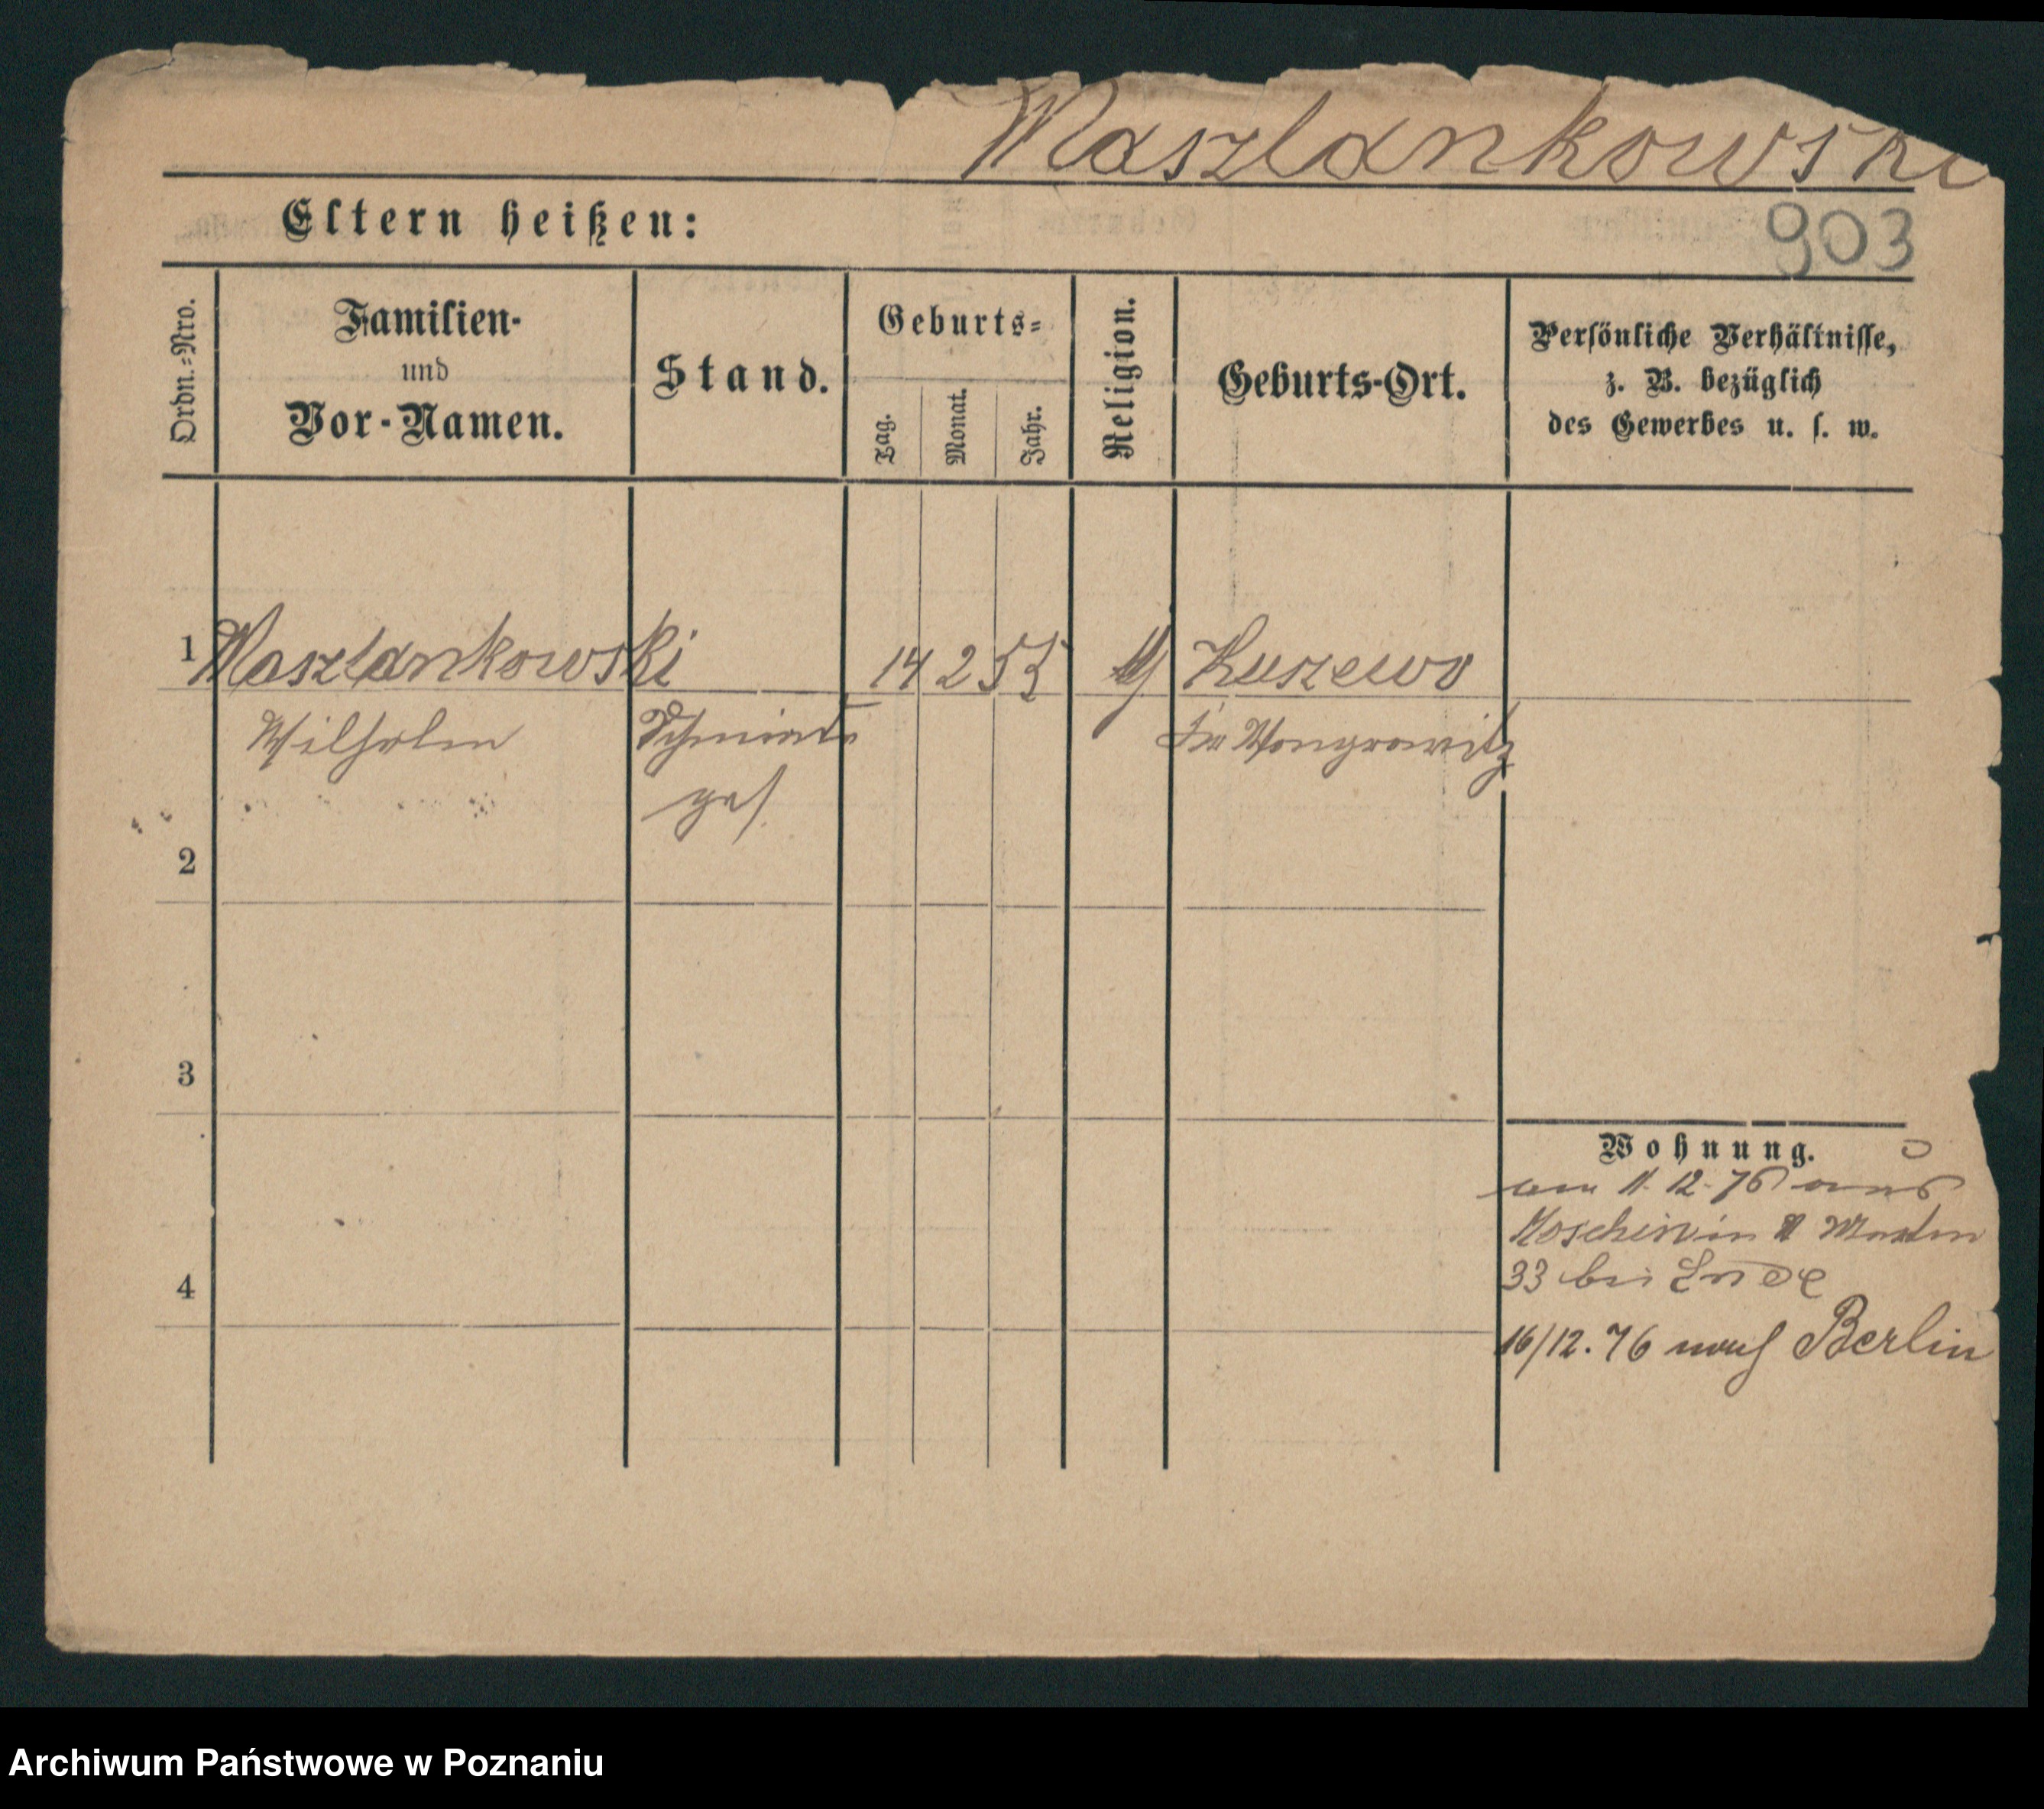 Maszlankowski
Eltern heißen:
903
Ordn.-Nro.
Familien-
und
Vor-Namen.
Stand.
Geburts-
Tag.
Monat.
Jahr.
Religion.
Geburts-Ort.
Persönliche Verhältnisse,
z. B. bezüglich
des Gewerbes u. s. w.
1 Maszlankowski 14 2 55 Kuszewo
Wilhelm Schmiede Kr. Wongrowitz
ges.
2
3
4
Wohnung.
am 11. 12. 76 aus
Moschin in
33 bei Ende
16/12. 76 nach Berlin
Archiwum Państwowe w Poznaniu